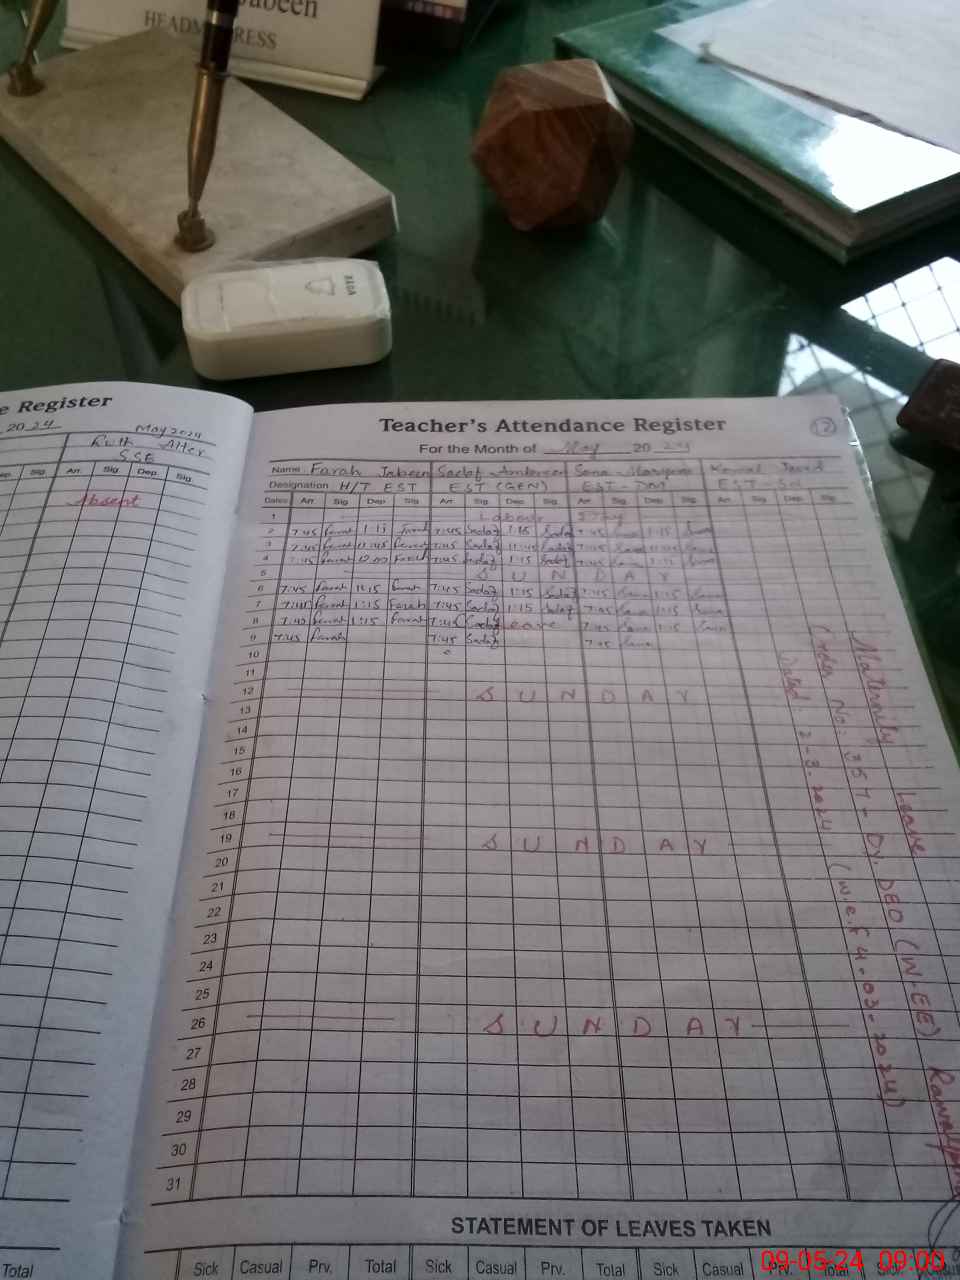 Jabeen
HEADMISTRESS
RAGA
e Register
Teacher's Attendance Register
12
20 24 May 2024
For the Month of May 20 24
Ruth Alter
SSE
Dep. Sig. Arr. Sig. Dep. Sig.
Absent
Name Farah Jabeen Sadaf Ambreen Sana
Designation H/T EST EST (GEN) EST-DM
Dates Arr Sig Dep Sig Arr Sig Dep Sig Arr Sig Dep Sig Arr Sig Dep Sig
1 Labour Day
2 7:45 Farah 1:15 Farah 7:45 Sadaf 1:15 Sadaf 7:45 Sana 1:15 Sana
3 7:45 Farah 11:45 Farah 7:45 Sadaf 11:45 Sadaf 7:45 Sana 11:45 Sana
4 7:45 Farah Farah 7:45 Sadaf 1:15 Sadaf 7:45 Sana 1:15 Sana
5 S U N D A Y
6 7:45 Farah 1:15 Farah 7:45 Sadaf 1:15 Sadaf 7:45 Sana 1:15 Sana
7 7:45 Farah 1:15 Farah 7:45 Sadaf 1:15 Sadaf 7:45 Sana 1:15 Sana
8 7:45 Farah 1:15 Farah 7:45 Sadaf Leave 7:45 Sana 1:15 Sana
9 7:45 Farah 7:45 Sadaf 7:45 Sana
10
11
12 S U N D A Y
13
14
15
16
17
18
19 S U N D A Y
20
21
22
23
24
25
26 S U N D A Y
27
28
29
30
31
Maternity Leave
Order No: 357 - Dy. DEO (W-EE) Rawalpindi
Dated: 2-3-2024 (w.e.f 4-03-2024)
STATEMENT OF LEAVES TAKEN
Total Sick Casual Prv. Total Sick Casual Prv. Total Sick Casual Prv. Total Sick
09-05-24 09:00